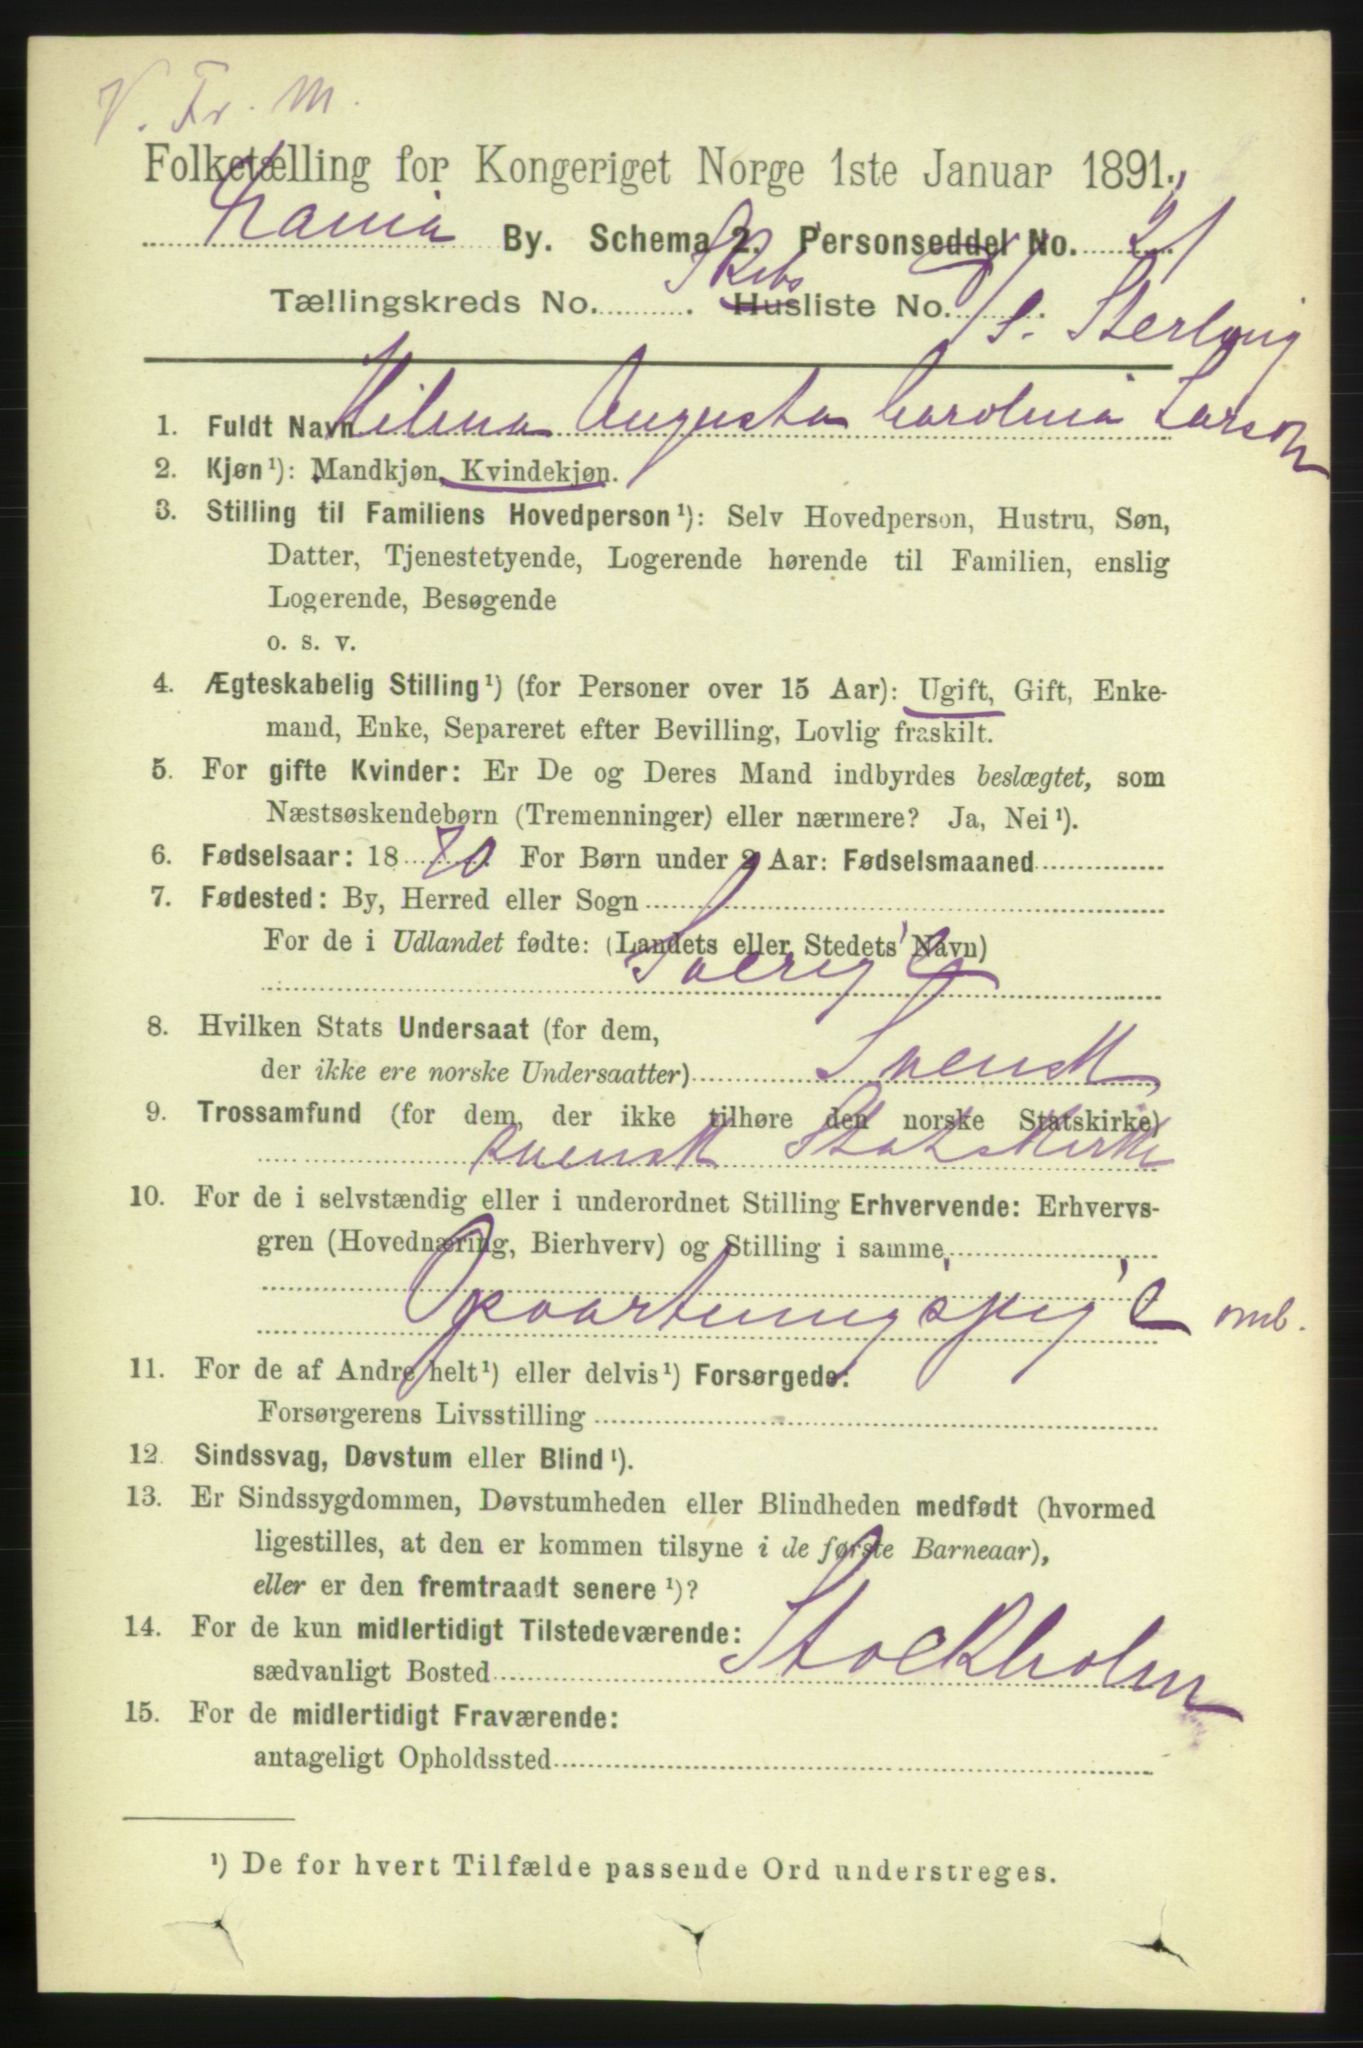 V. Fr. M.
Folketælling for Kongeriget Norge 1ste Januar 1891.
By. Schema 2. Personseddel No. 21
Tællingskreds No. Skibs Husliste No. S/S. Sterling
1. Fuldt Navn Hilma Augusta Carolina Larson
2. Kjøn¹): Mandkjøn, Kvindekjøn.
3. Stilling til Familiens Hovedperson¹): Selv Hovedperson, Hustru, Søn,
Datter, Tjenestetyende, Logerende hørende til Familien, enslig
Logerende, Besøgende
o. s. v.
4. Ægteskabelig Stilling¹) (for Personer over 15 Aar): Ugift, Gift, Enke-
mand, Enke, Separeret efter Bevilling, Lovlig fraskilt.
5. For gifte Kvinder: Er De og Deres Mand indbyrdes beslægtet, som
Næstsøskendebørn (Tremenninger) eller nærmere? Ja, Nei¹).
6. Fødselsaar: 1870 For Børn under 2 Aar: Fødselsmaaned
7. Fødested: By, Herred eller Sogn
For de i Udlandet fødte: (Landets eller Stedets Navn)
Sverige
8. Hvilken Stats Undersaat (for dem,
der ikke ere norske Undersaatter) Svensk
9. Trossamfund (for dem, der ikke tilhøre den norske Statskirke)
svensk Statskirke
10. For de i selvstændig eller i underordnet Stilling Erhvervende: Erhvervs-
gren (Hovednæring, Bierhverv) og Stilling i samme
Opvartningspige omb.
11. For de af Andre helt¹) eller delvis¹) Forsørgede:
Forsørgerens Livsstilling
12. Sindssvag, Døvstum eller Blind¹).
13. Er Sindssygdommen, Døvstumheden eller Blindheden medfødt (hvormed
ligestilles, at den er kommen tilsyne i de første Barneaar),
eller er den fremtraadt senere¹)?
14. For de kun midlertidigt Tilstedeværende:
sædvanligt Bosted Stockholm
15. For de midlertidigt Fraværende:
antageligt Opholdssted
¹) De for hvert Tilfælde passende Ord understreges.